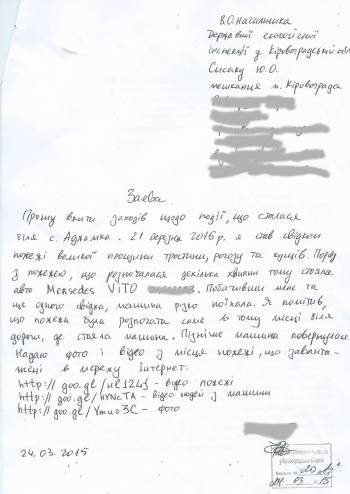 В.О. Начальника
Державної екологічної
інспекції у Кіровоградській обл
Сисаку Ю.О.
мешканця м. Кіровограда
Заява
Прошу вжити заходів щодо події, що сталася
біля с. Аджамка. 21 березня 2015 р. я став свідком
пожежі великої площини тростини, рогозу та кущів. Поряд
з пожежею, що розпочалася декілька хвилин тому стояла
авто Mersedes ViTO. Побачивши мене та
ще одного свідка, машина різко поїхала. Я помітив,
що пожежа була розпочата саме в тому місці біля
дороги, де стояла машина. Пізніше машина повернулася.
Надаю фото і відео з місця пожежі, що заванта-
жені в мережу Інтернет:
- відео пожежі
- відео людей з машини
- фото
24.03.2015